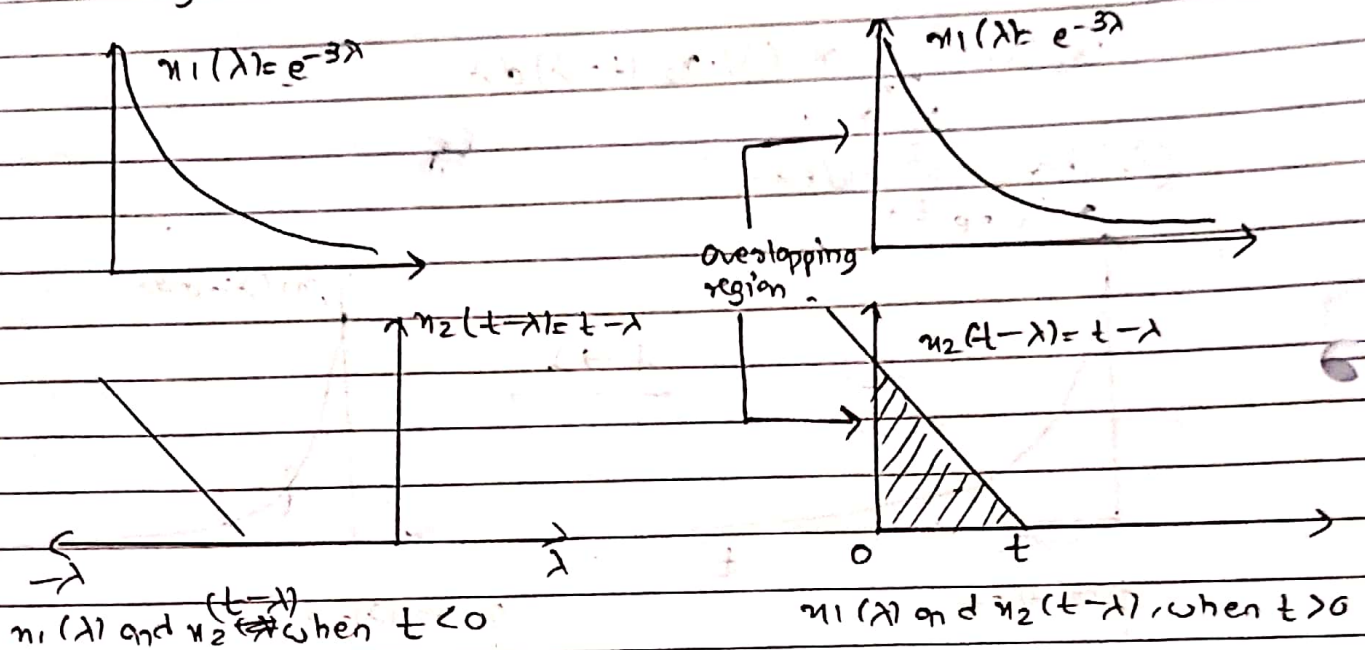 x1(λ)= e^-3λ
x1(λ)= e^-3λ
overlapping
region
x2(t-λ)= t-λ
x2(t-λ)= t-λ
-λ
λ
0
t
(t-λ)
x1(λ) and x2 when t<0
x1(λ) and x2(t-λ), when t>0